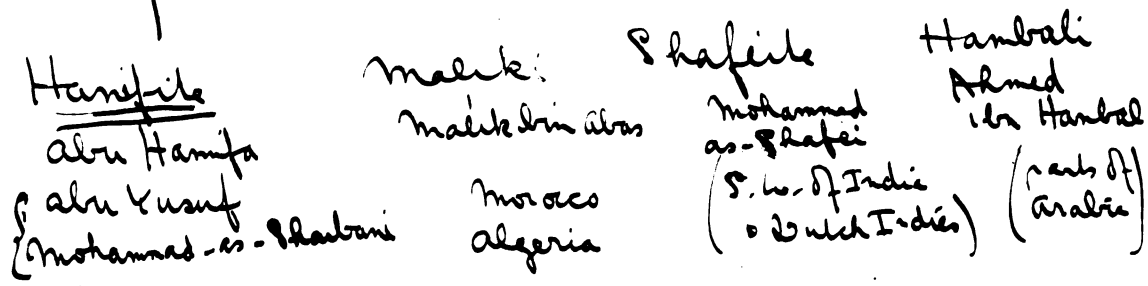 Hanifite
abu Hanifa
{ abu Yusuf
Mohammad-as-Shaibani
Maliki
Malik bin abas
Morocco
Algeria
Shafeite
Mohammad
as-Shafei
(S. W. of India
Dutch Indies)
Hambali
Ahmed
ibn Hanbal
(parts of
Arabia)